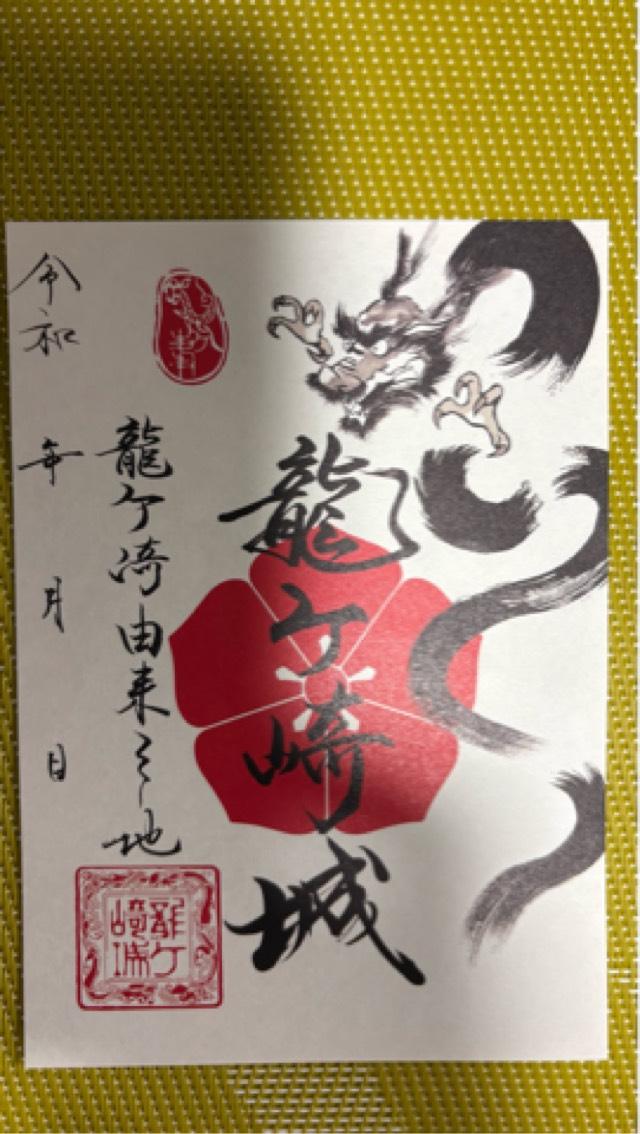 龍ケ崎城
龍ケ崎由来之地
令和 年 月 日
龍ケ
崎城